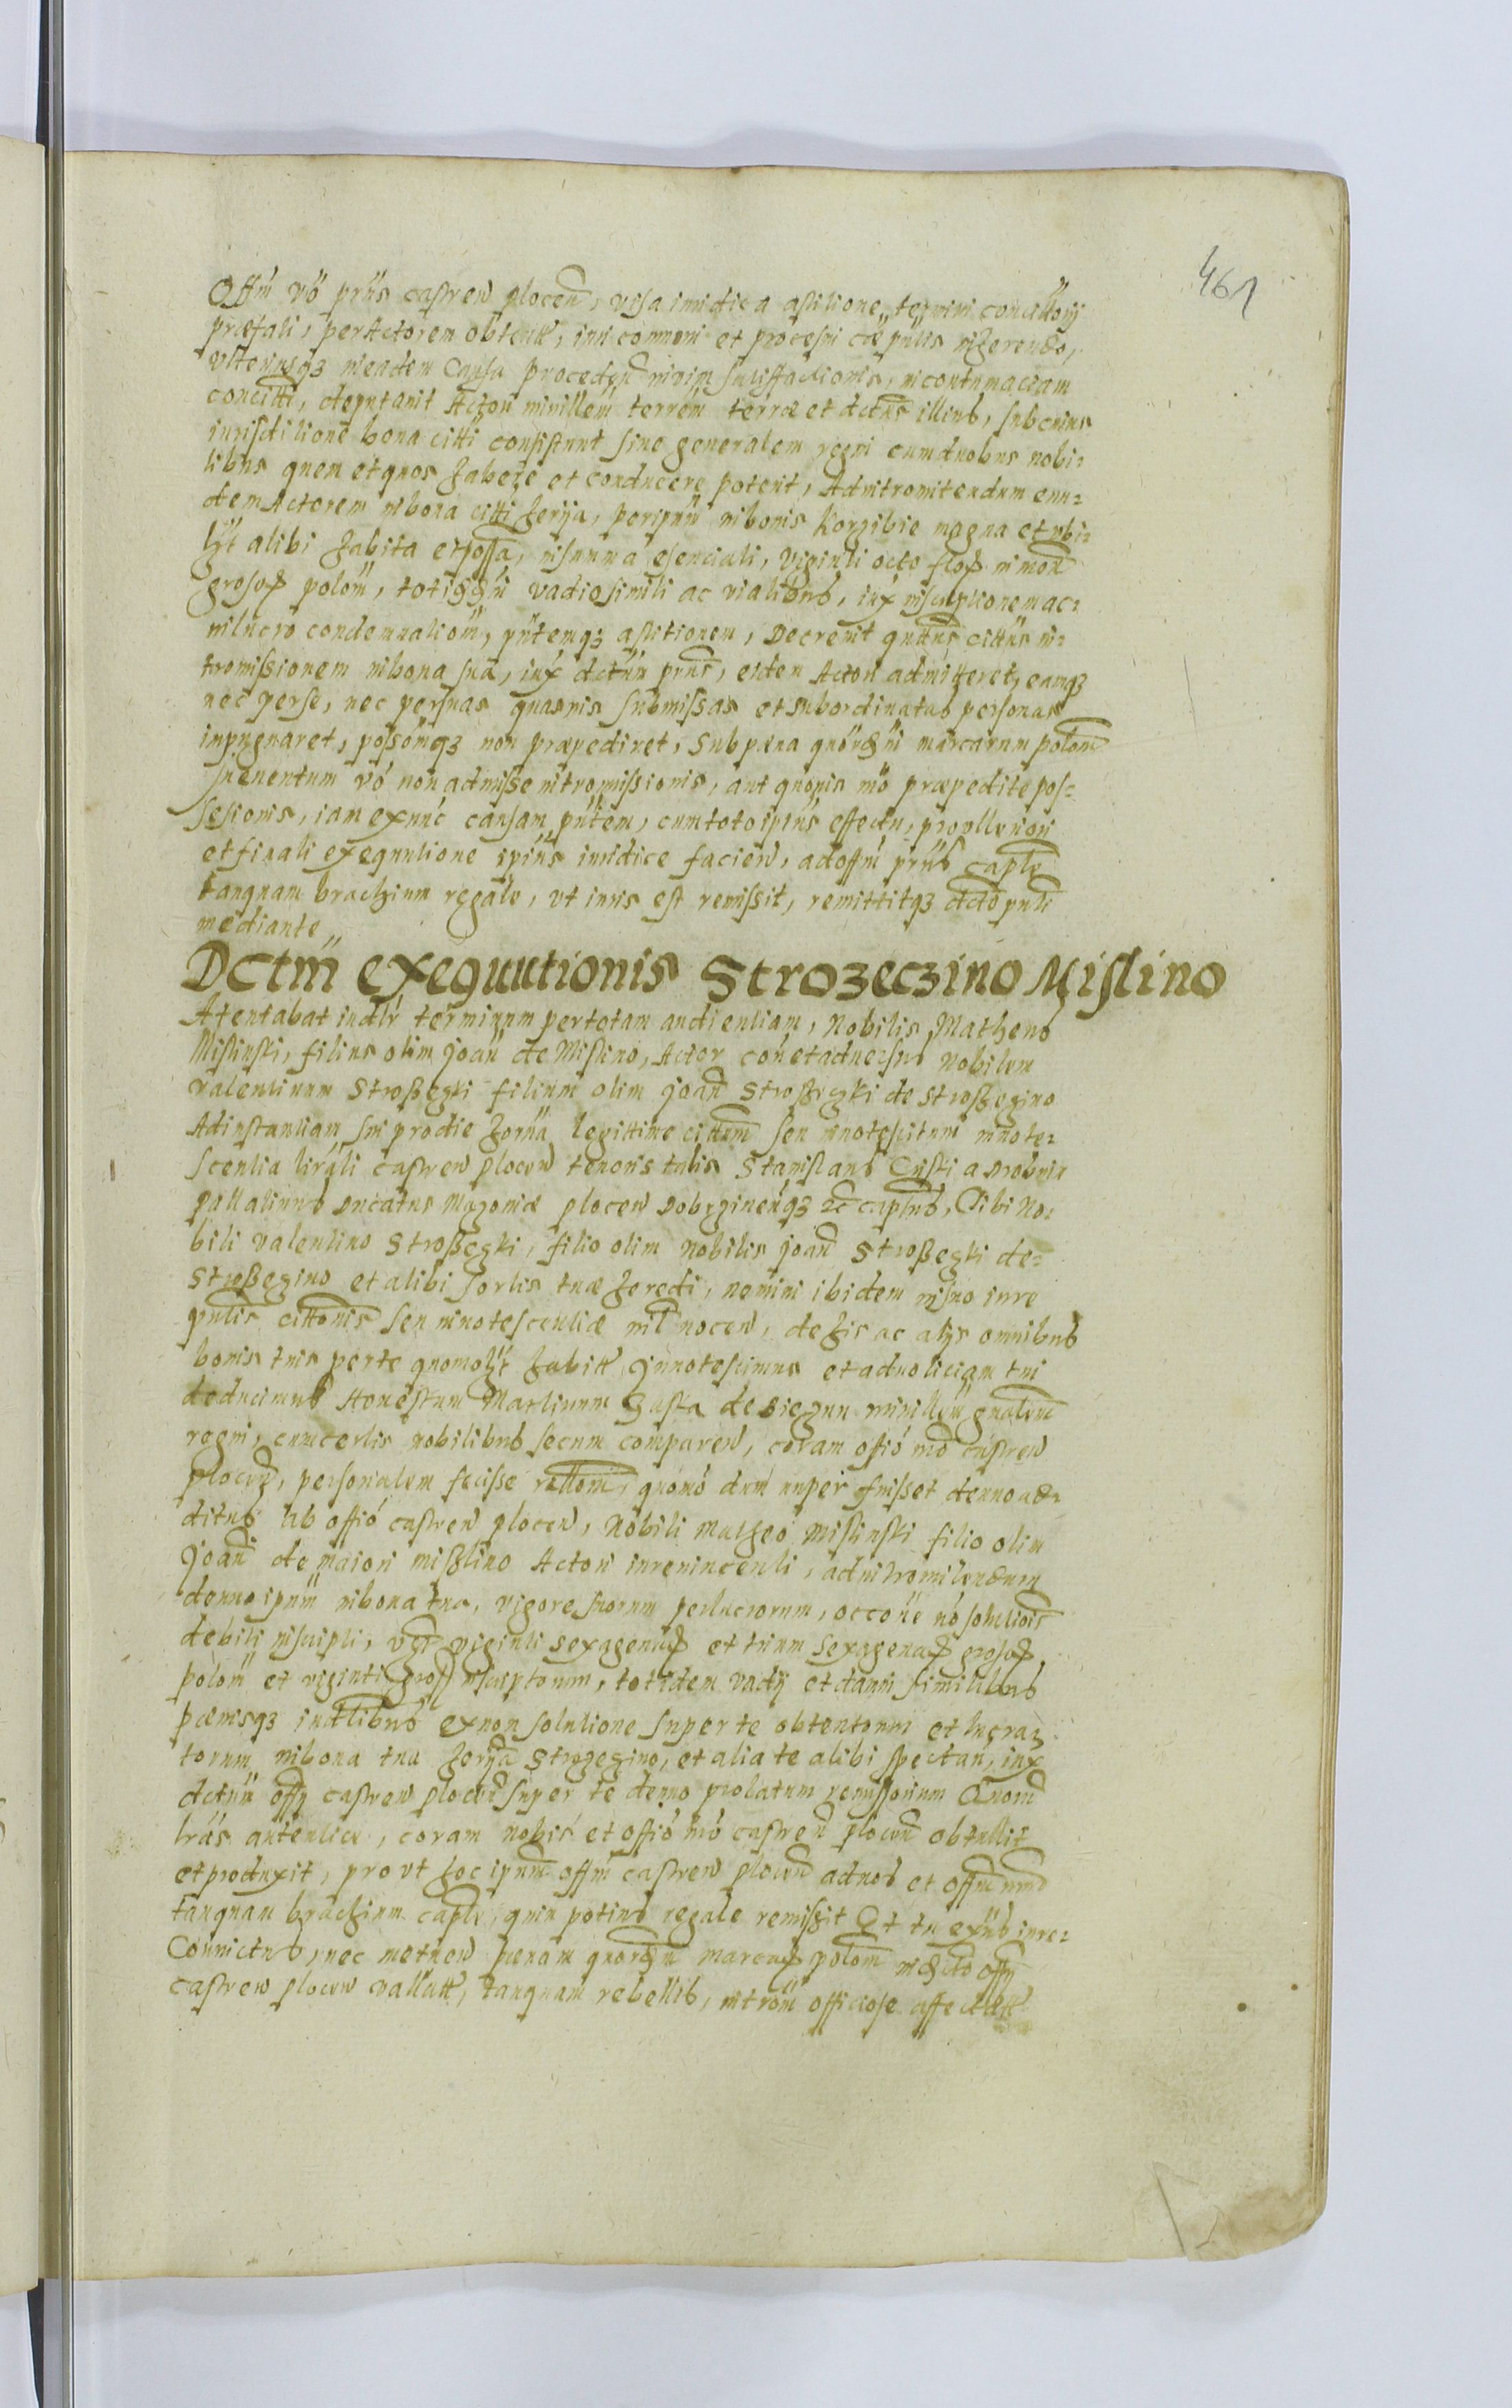 461
Offm vo pñs castren plocen, visa iuridica astitione termini concittorij
præfati, per Actorem obtentt, iuri communi et processui cæ pñtis inhærendo,
vlteriusqz in eadem Causa procedendo in vim satisffactionis, in contumaciam
concitti, deputavit Actori ministem terrem terræ et dctus illius, sub cuius
iurisdictione bona citti consistunt siue generalem regni cum duobus nobi=
libus quem et quos habere et conducere poterit, Ad intromitendum eun=
dem Actorem in bona citti hæria, per ipm in bonis Korzibie magna et vbi=
libt alibi habita et possa, in summa essenciali, Viginti octo flor in mon
grosor polon, totiqz vadio simili ac rialibus, iux inscriptionem ac
in lucro condemnationi, pñtemqz astitionem, Decrevit quatus cittus in=
tromissionem in bona sua, iux dctum prns, eidem Actori admitteret, eamqz
nec per se, nec per suas quasuis submissas et subordinatas personas
impugnaret, possomqz non præpediret, Sub pæna marcarum polon
In euentum vo non admisse intromissionis, aut quouis mo præpedite pos=
sessionis, iam ex nunc causam pñtem, cum toto ipius effectu, pro vlteriori
et finali exequutione ipius iuridice facien, ad offm pñs caple
tanquam brachium regale, vt iuris est remissit, remittitqz dcto pnti
mediante
Dctm exequutionis Strozeczino Mislino
Atentabat iudlr terminum per totam audientiam, Nobilis Matheus
Mislinski, filius olim Joan de Mislino, Actor con et aduersus Nobilem
valentinum Stroßeczki filium olim Joan Stroßeczki de Stroßeczino
Ad instantiam sui pro die horna legittime cittum seu innotescitum innote=
scentia lirali castren plocen tenoris talis Stanislaus a Drobnin
pallatinus Ducatus Mazoviæ plocen Dobrzinenqz zc captneus, Tibi No=
bili valentino Stroßeczki, filio olim Nobilis Joan Stroßeczki de=
Stroßeczino et alibi sortis tuæ heredi, nemini ibidem in suo iure
pntis cittonis seu innotescentiæ nil nocen, de his ac alijs omnibus
bonis tuis per te quomolibt habitt Innotescimus et ad noticiam tui
deducimus Honestum Martinum de Bieznn ministem gnalem
regni, cum certis nobilibus secum comparen, coram offio nro castren
plocen, personalem fecisse rllonem, quomo dum nuper fuisset denuo ad=
ditus ab offio castren plocen, Nobili Matheo Mislinski filio olim
Joan de maiori mißlino Actori iure vincenti, ad intromitendum
denuo ipum in bona tua, vigore suorum perlucrorum, occone no solutiois
debiti inscripti, viginti sexagenar et trium sexagenar grosor
polon et viginti gross inscriptorum, totidem vadij et damni similibus
pænisqz iudlibus ex non solutione super te obtentorum et lucra=
torum in bona tua heria Strozeczino, et alia te alibi spectan, iux
dctum offy castren plocen super te denuo prolatum remissorium Quom
lras autenticæ, coram nobis et offio nro castren plocen obtullit
et produxit, pro vt hoc ipum offm castren plocen ad nos et offm nrm
tanquam brachium caple, quin potius regale remißit Et tu exns iure=
Convictus, nec metuen pænam marcar polon in dcto offy
castren plocen vallatt, tanquam rebellis, introm officiose affectatt